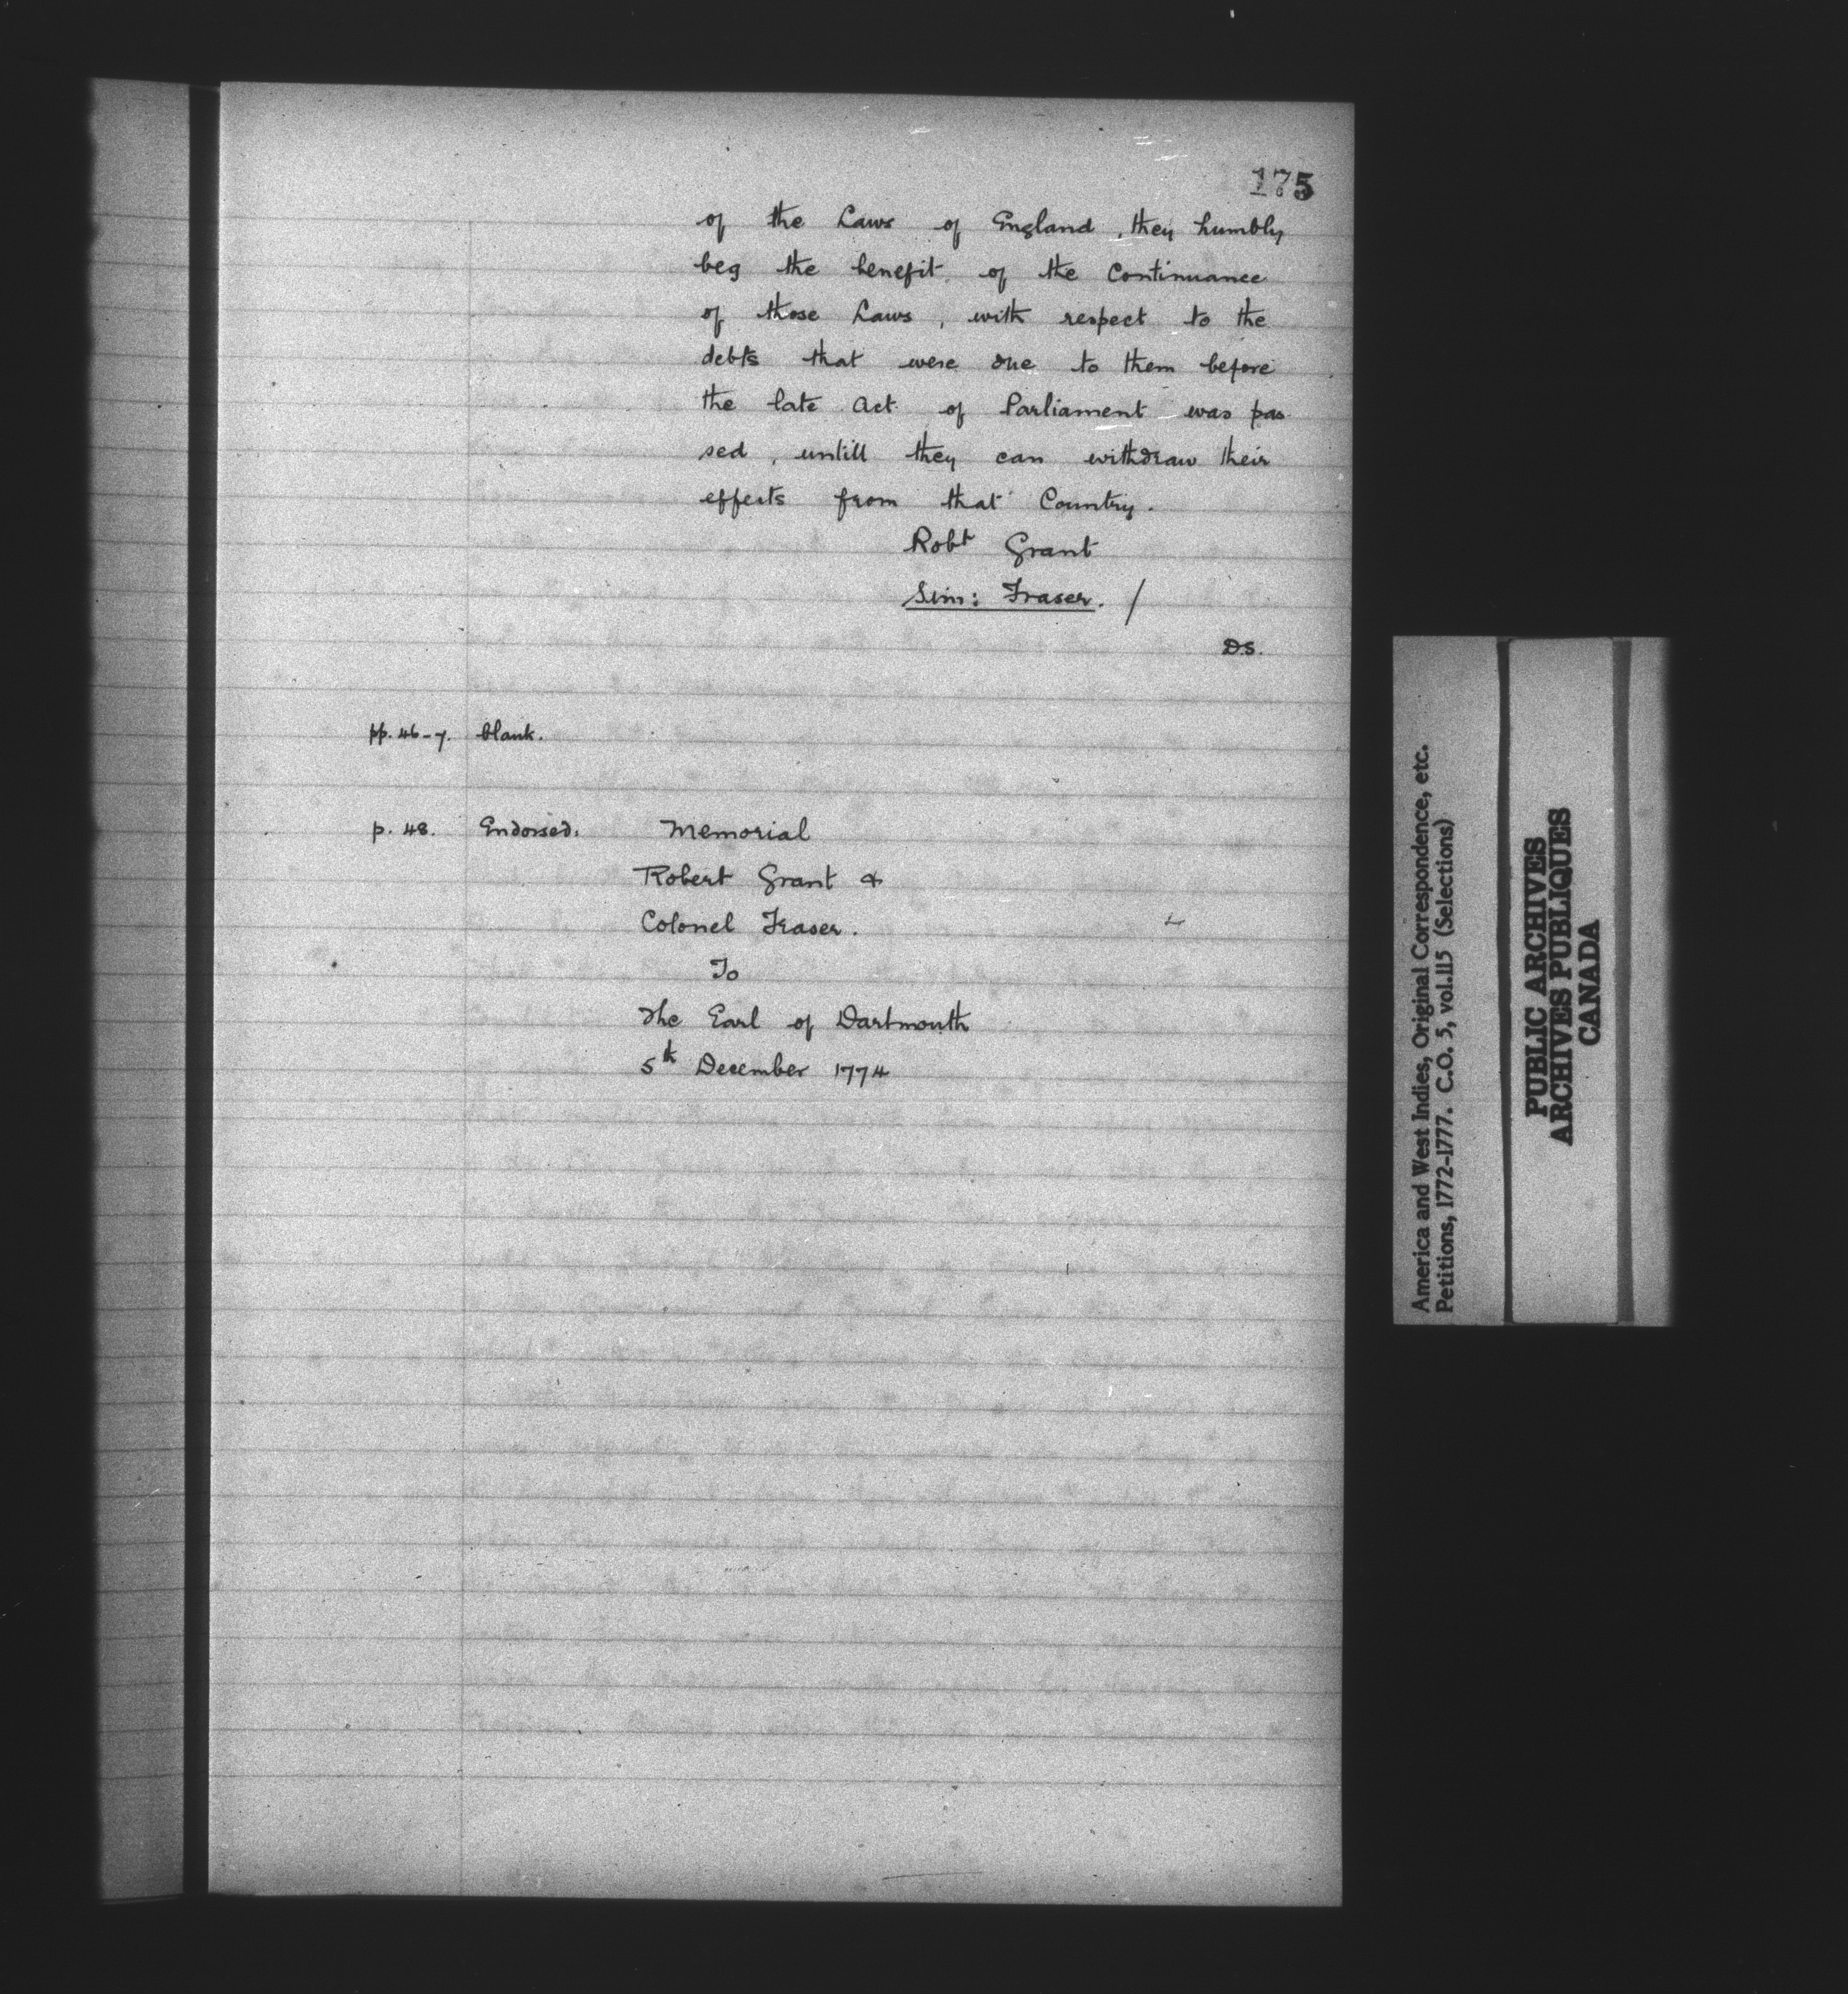 175
of the Laws of England, they humbly
beg the benefit of the Continuance
of those Laws, with respect to the
debts that were due to them before
the late Act of Parliament was pas
sed, untill they can withdraw their
effects from that Country.
Robt Grant
Sim: Fraser. /
D.S.
pp. 46-7. blank.
p. 48. Endorsed. Memorial
Robert Grant &
Colonel Fraser.
To
The Earl of Dartmouth
5th December 1774
America and West Indies, Original Correspondence, etc.
Petitions, 1772-1777. C.O. 5, vol.115 (Selections)
PUBLIC ARCHIVES
ARCHIVES PUBLIQUES
CANADA